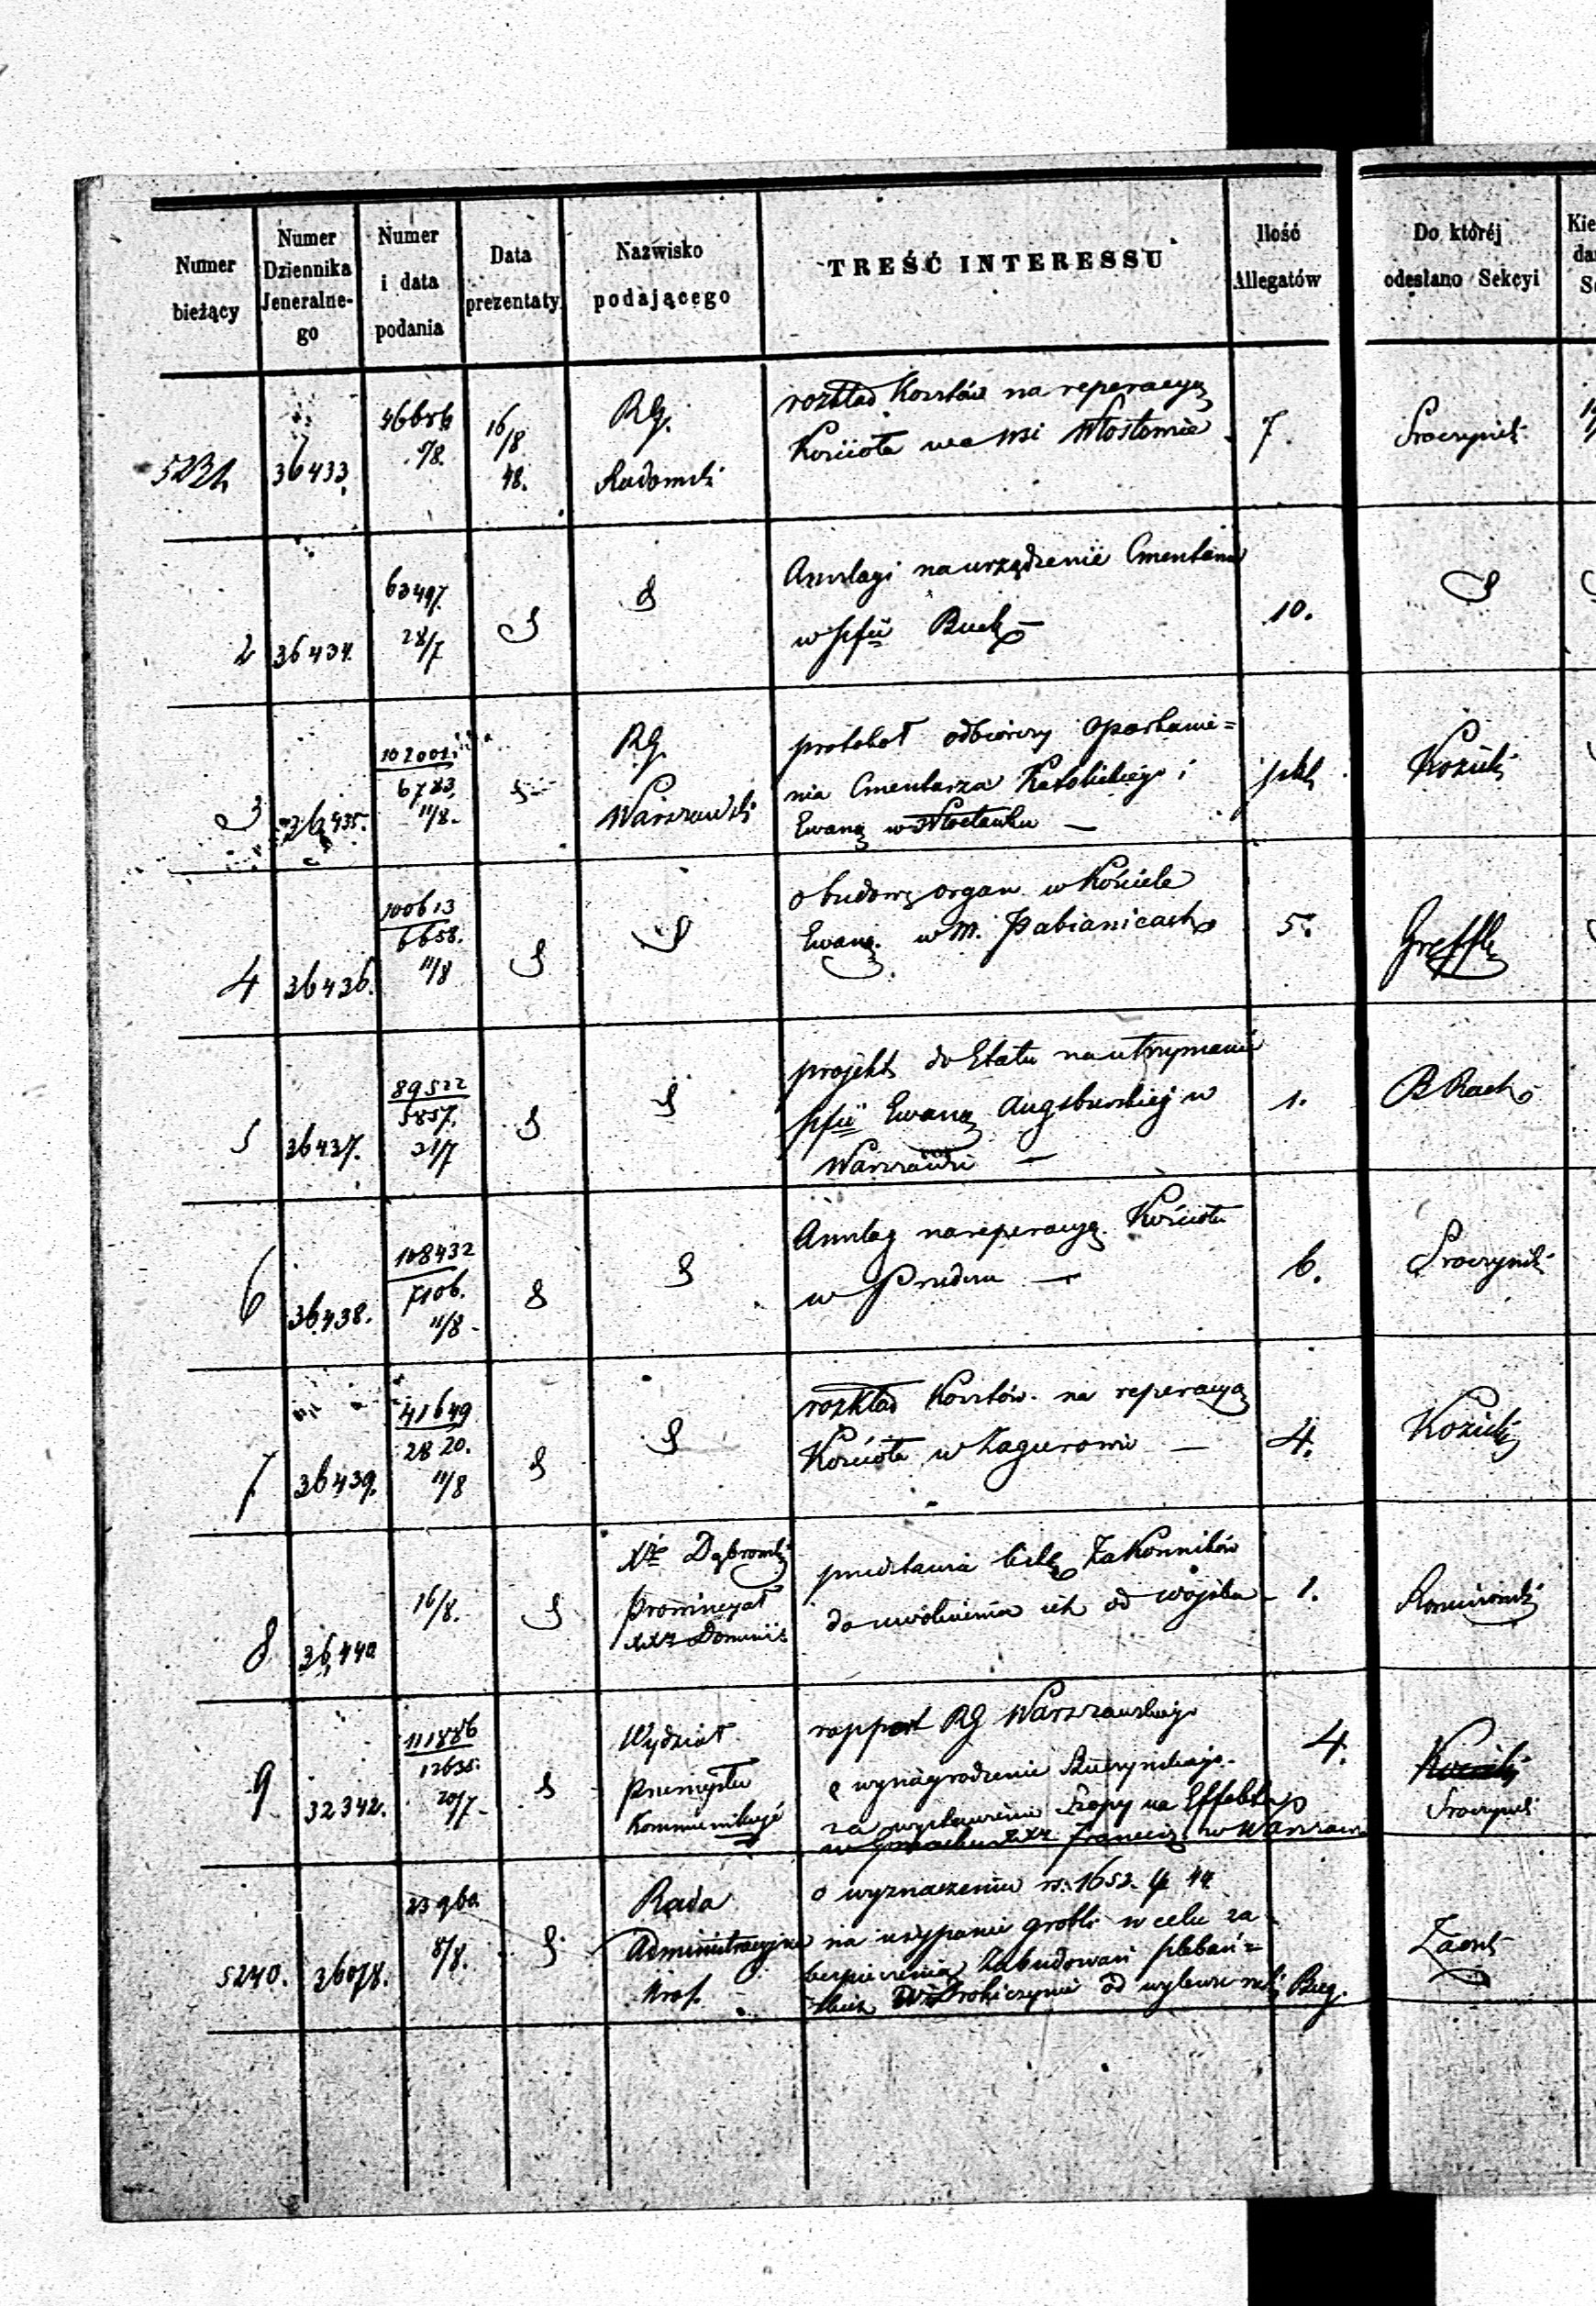 Numer bieżący
Numer Dziennika Jeneralnego
Numer i data podania
Data prezentaty
Nazwisko podającego
TREŚĆ INTERESSU
Ilość Allegatów
Do któréj odesłano Sekcyi
5231
36433.
/8.
16/8 48.
RG.
Radomski
rozkład Kosztów na reperacyą
Kościoła we wsi Włostowie
7.
2
36434.
28/7
Anszlagi na urządzenie Cmentarza
w pfii
10.
3
36435.
102001.
6783.
11/8.
RG.
Warszawski
protokoł odbiorczy oparkanie=
nia Cmentarza Katolickiego i
Ewang w Włocławku —
pkt
Kozicki
4
36436.
100613
6658.
11/8
o budowę organ w Kościele
Ewang. w m. Pabianicach
5.
5
36437.
89522
5857.
31/7
projekt do Etatu na utrzymanie
pfii Ewang Augsburskiej w
Warszawie —
1.
6
36438.
108432
7106.
11/8
Anszlag na reperacyą Kościoła
w —
6.
7
36439.
41649
2820.
11/8
rozkład Kosztów na reperacyą
Kościoła w Zagurowie —
4.
Kozicki
8
36440
16/8.
Xdz Dąbrowski
Prowincyał
XXz Dominik
przedstawia listę Zakonników
do uwolnienia ich od wojska
1.
9
32342.
111886
12635.
20/7
Wydział
Przemysłu
Kommunikuje
rapport RG Warszawskiego
o wynagrodzenie
za wystawienie Szopy na Effekta
w gmachu XXz Francisz. w Warszawie
4.
5240.
36078.
23960.
8/8.
Rada
Administracyjna
Król.
o wyznaczeniu rs. 1653 k 44
na usypanie grobli w celu za
bezpieczenia Zabudowań plebań=
skich w Drohiczynie od wylewu rzeki Bug.